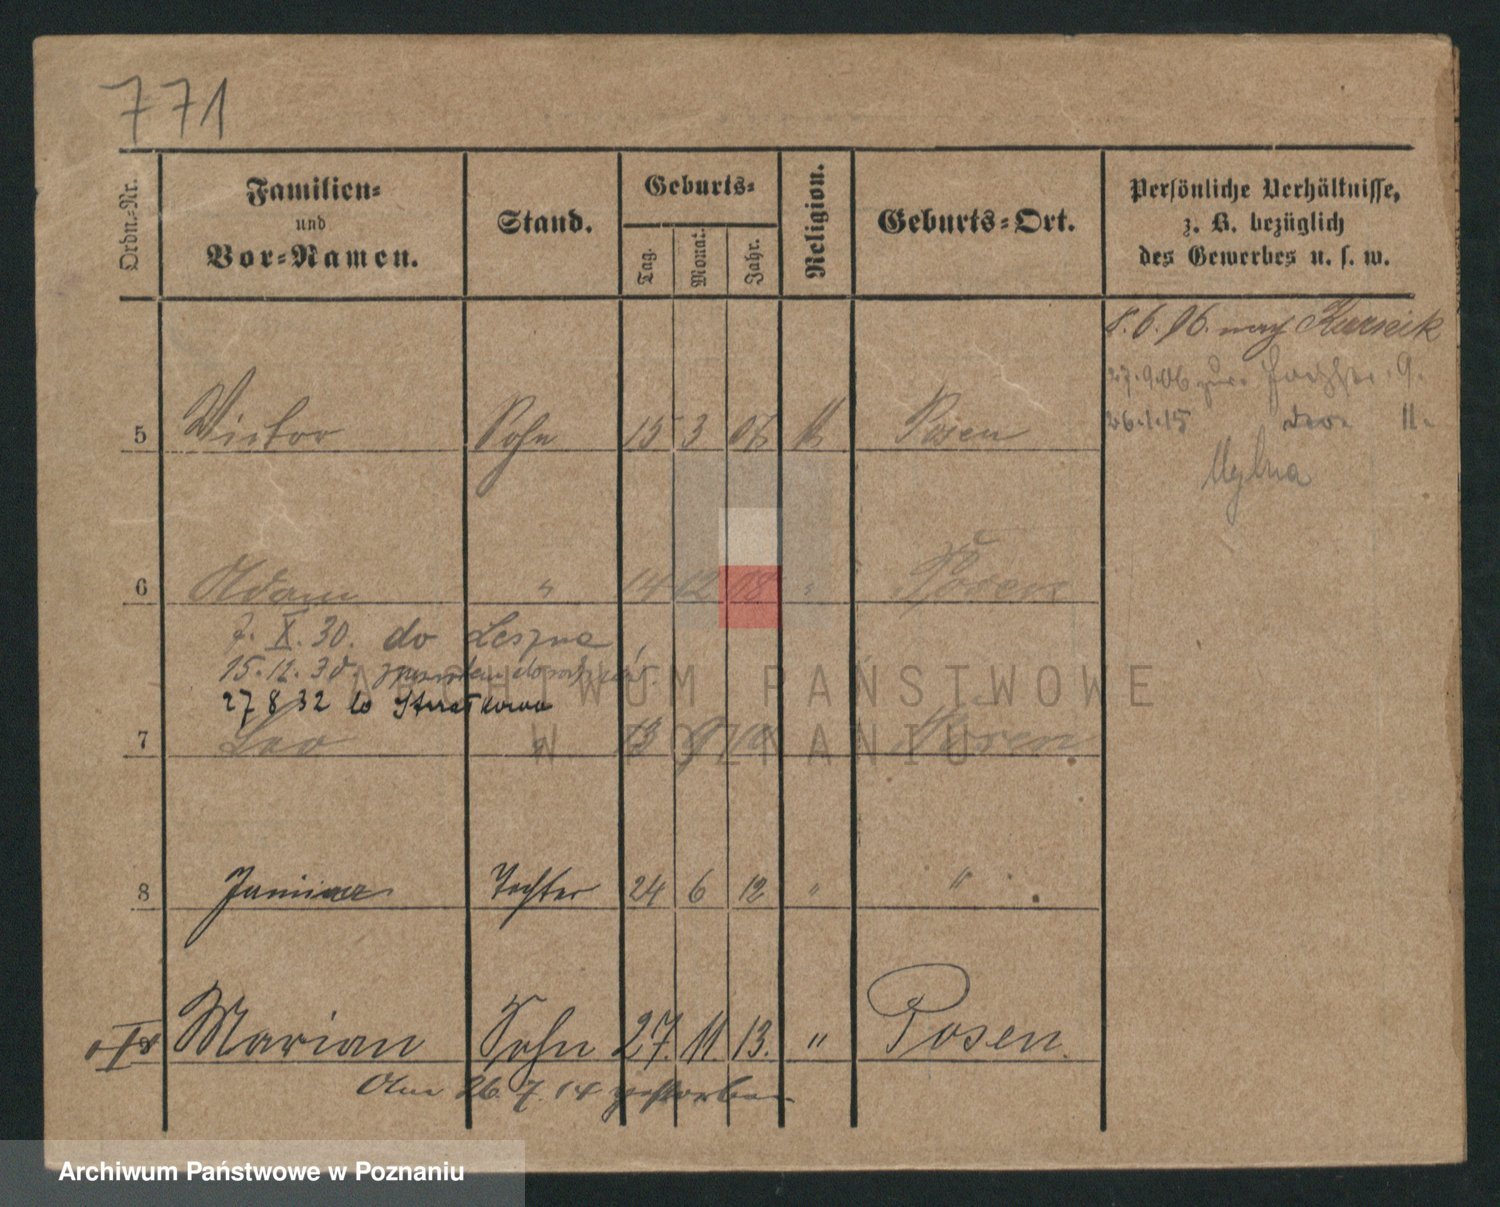 771
Ordn.-Nr.
Familien-
und
Vor-Namen.
Stand.
Geburts-
Tag.
Monat.
Jahr.
Religion.
Geburts-Ort.
Persönliche Verhältnisse,
z. B. bezüglich
des Gewerbes u. s. w.
8.6.06. nach Kurnik
27.9.06 zur 9.
26.1.15 11.
5 Victor Sohn 15 3 07 k Posen
6 Adam " 14 12 08 " Posen
7. X. 30. do Leszna
15.12.30.
27 8 32 do Strzałkowa
7 Leo " 13 9 10 Posen
8 Janina Tochter 24 6 12 " "
Marian Sohn 27. 11 13. " Posen.
Am 26.7.14 gestorben
ARCHIWUM PAŃSTWOWE
W POZNANIU
Archiwum Państwowe w Poznaniu